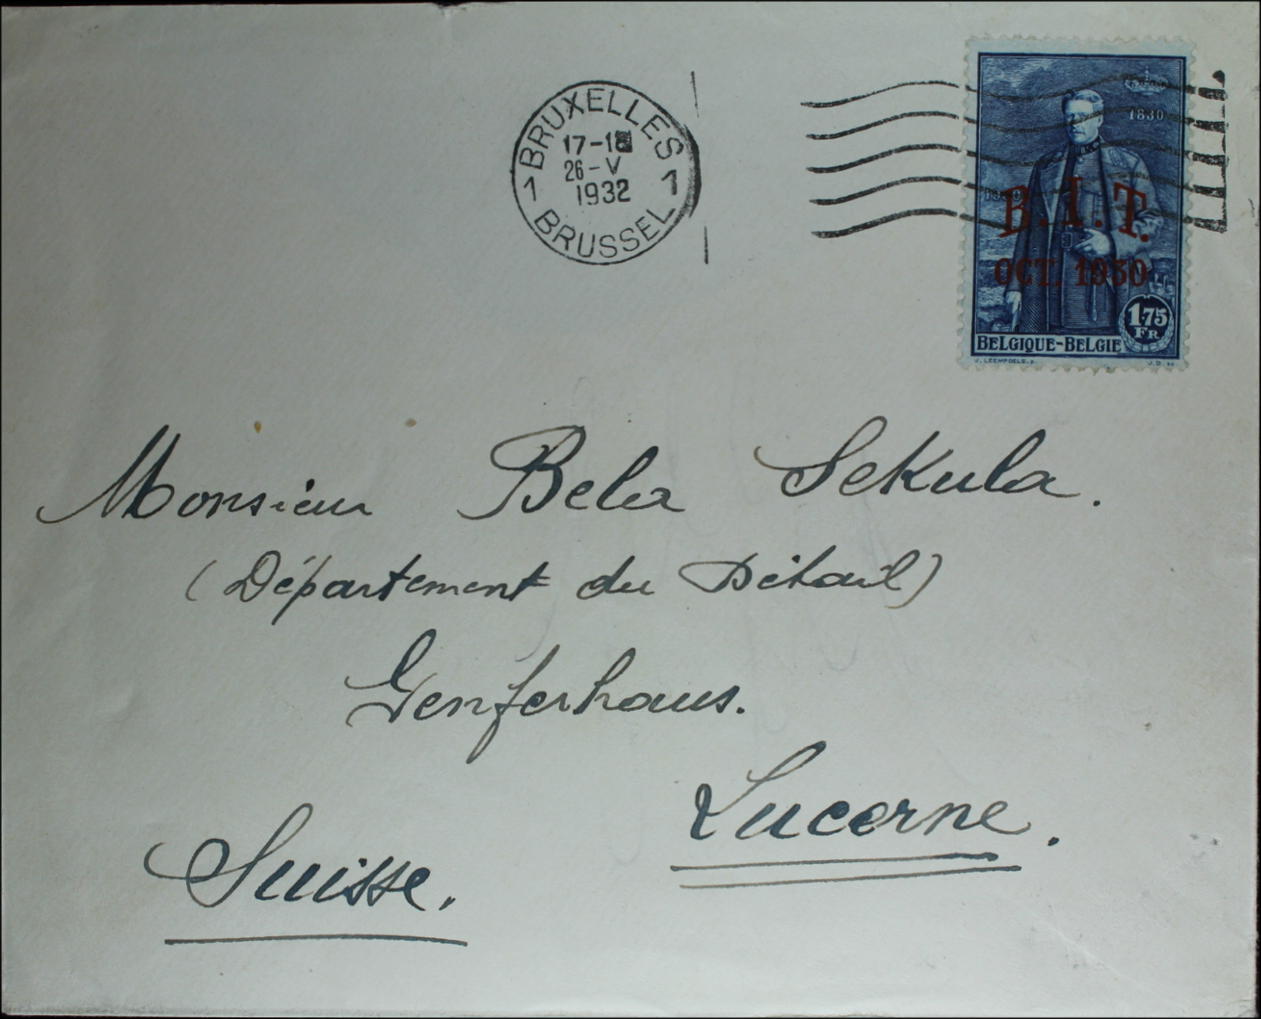 BRUXELLES
17-18
26-V
1932
1 1
BRUSSEL
1830
1930
B.I.T.
OCT. 1930
1.75
FR
BELGIQUE-BELGIE
J.D.
Monsieur Bela Sekula.
(Département du Détail)
Genferhaus.
Lucerne.
Suisse.